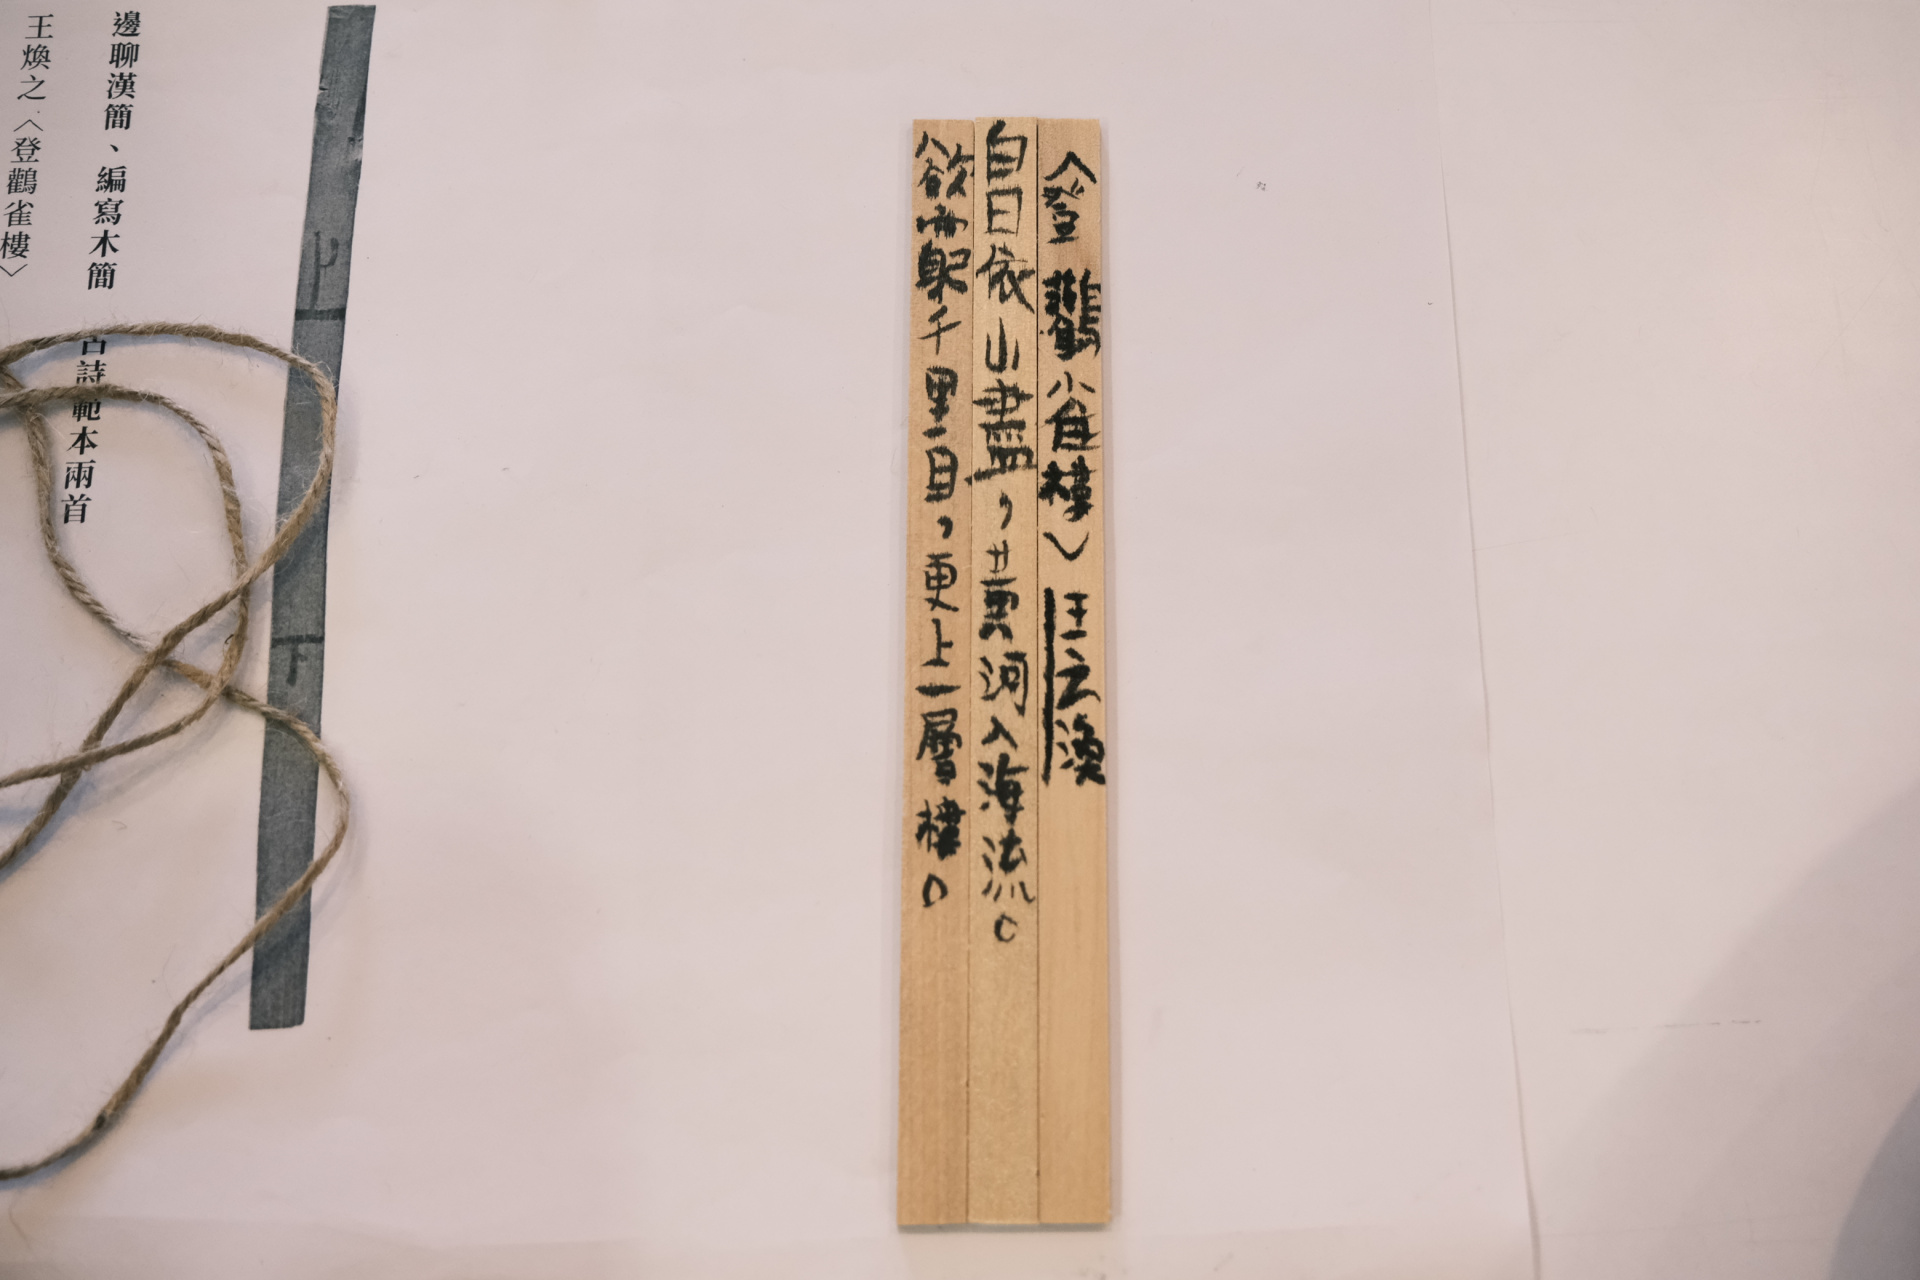 〈登鸛雀樓〉王之渙
白日依山盡，黃河入海流。
欲窮千里目，更上一層樓。
上
下
邊聊漢簡、編寫木簡 古詩範本兩首
王煥之〈登鸛雀樓〉